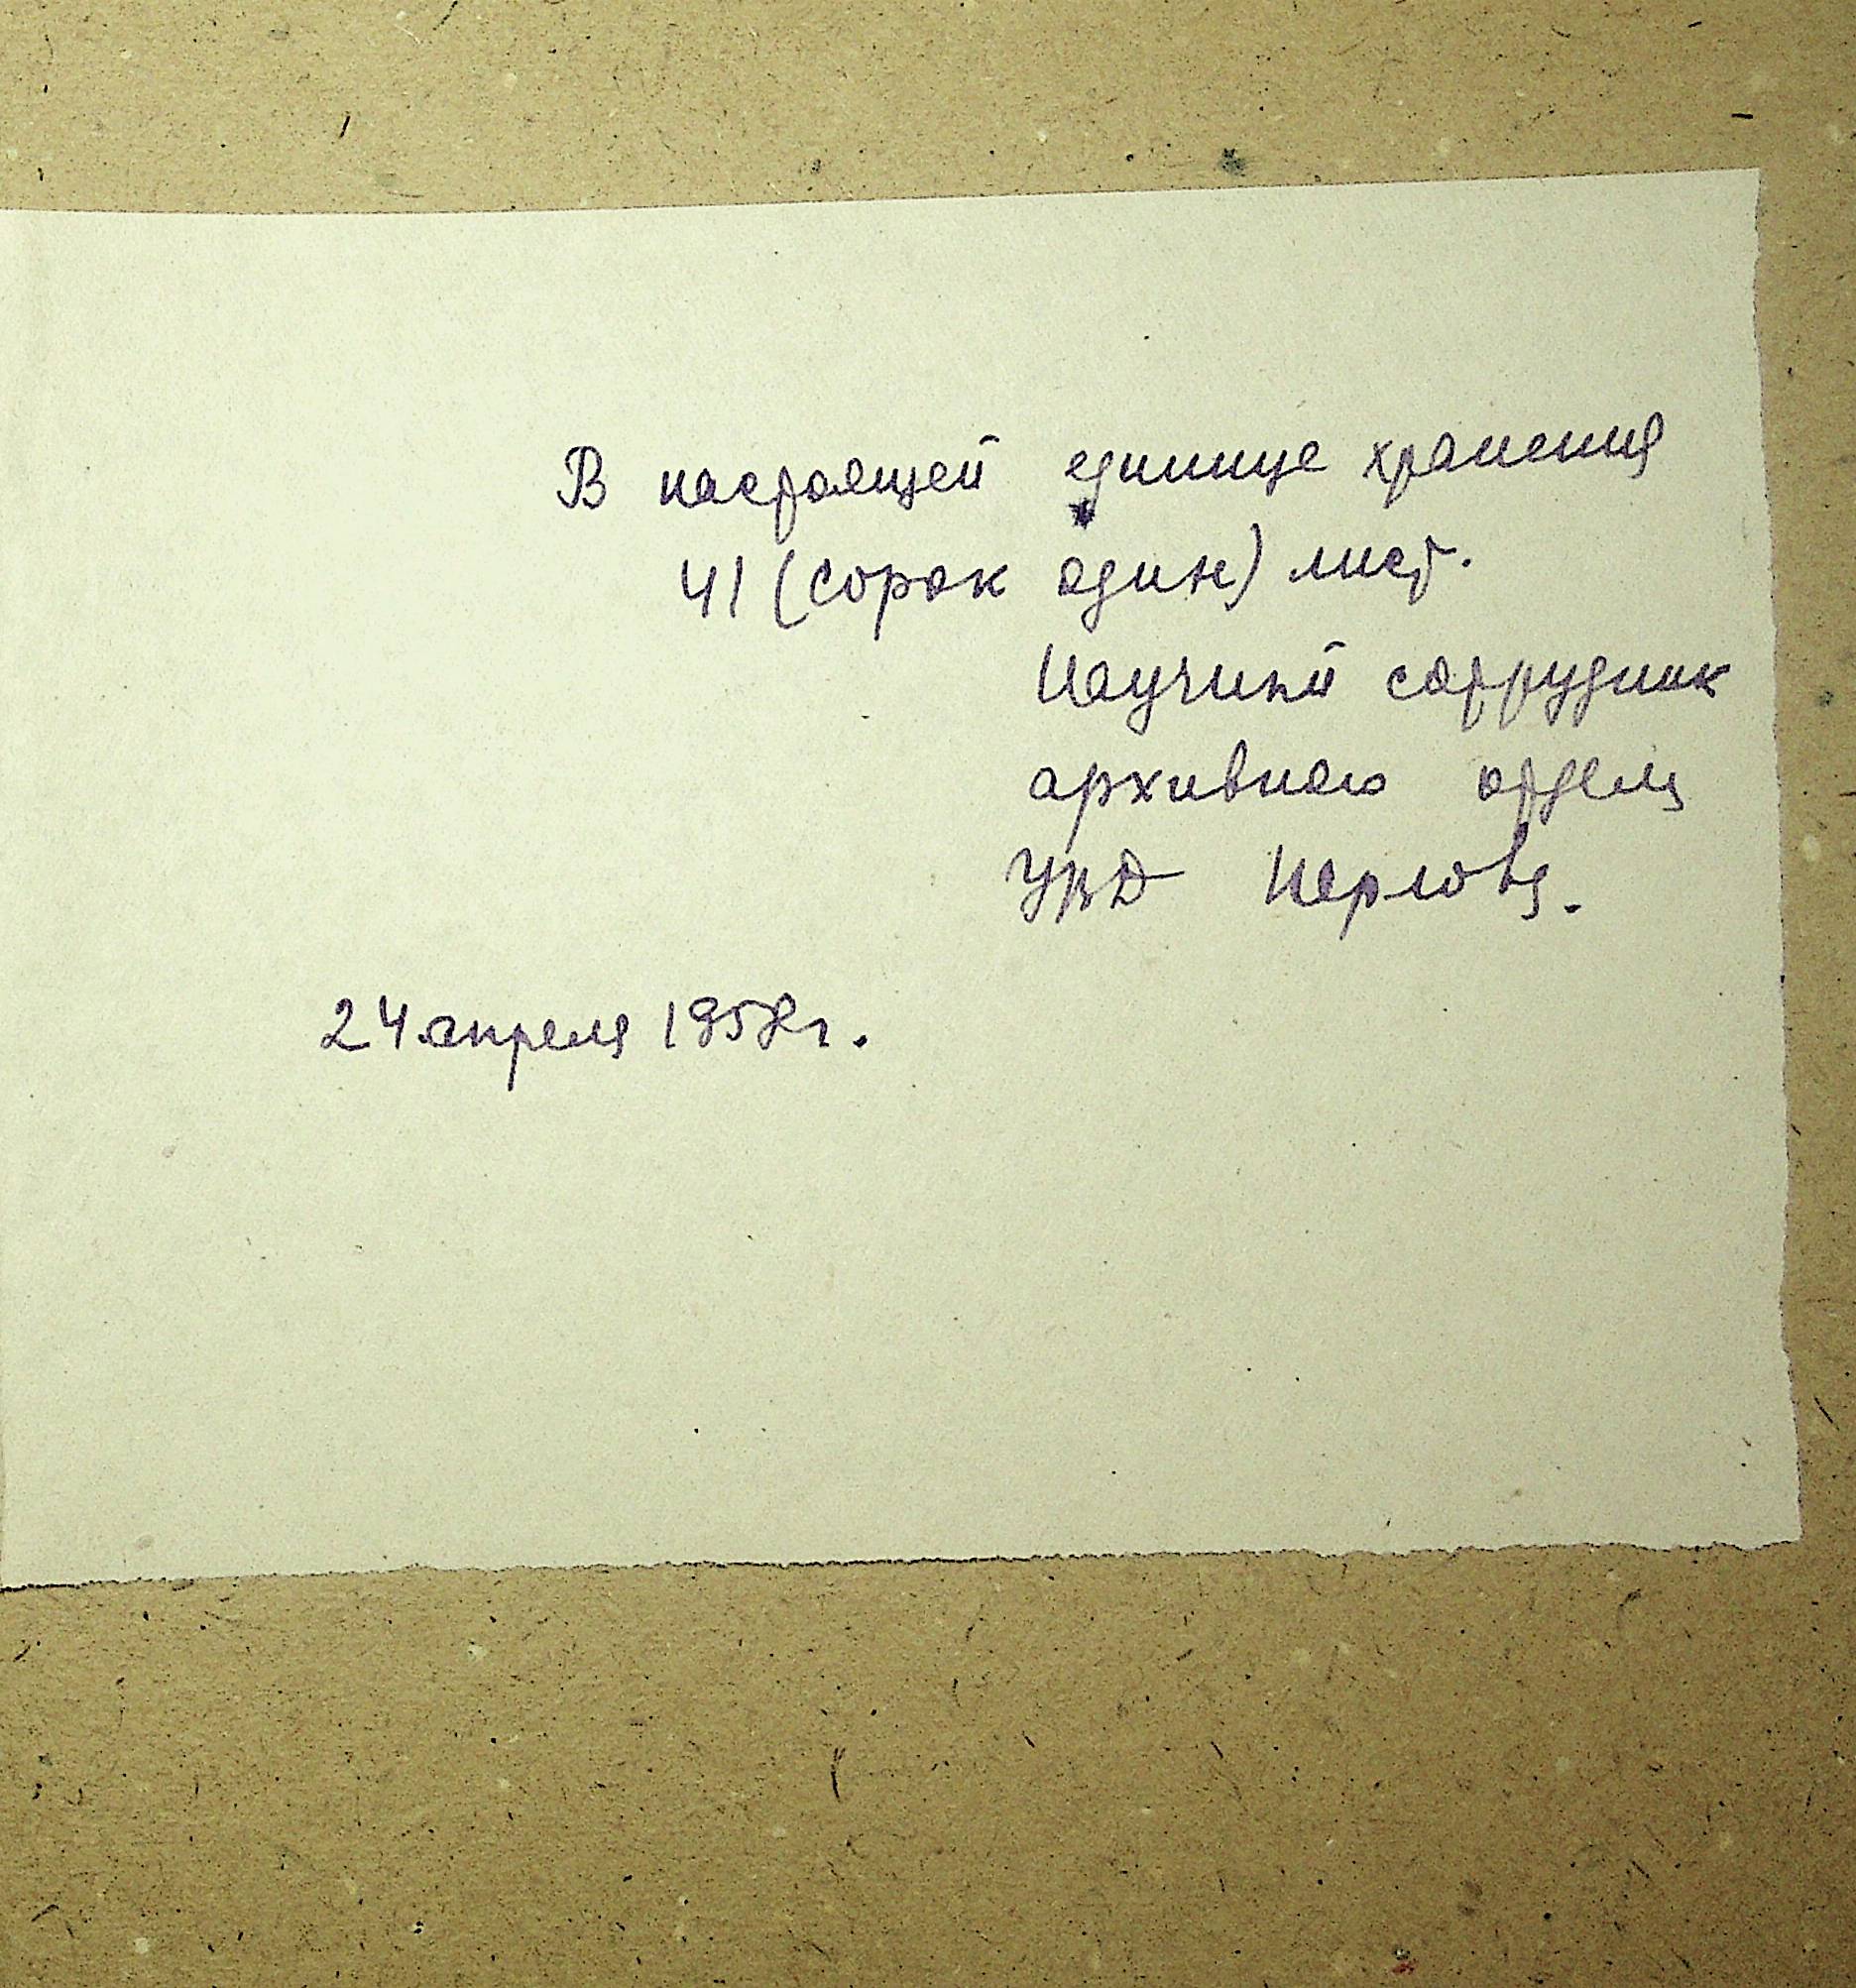 В настоящей единице хранения
41 (сорок один) лист.
Научный сотрудник
архивного отдела
УВД
24 апреля 1958 г.